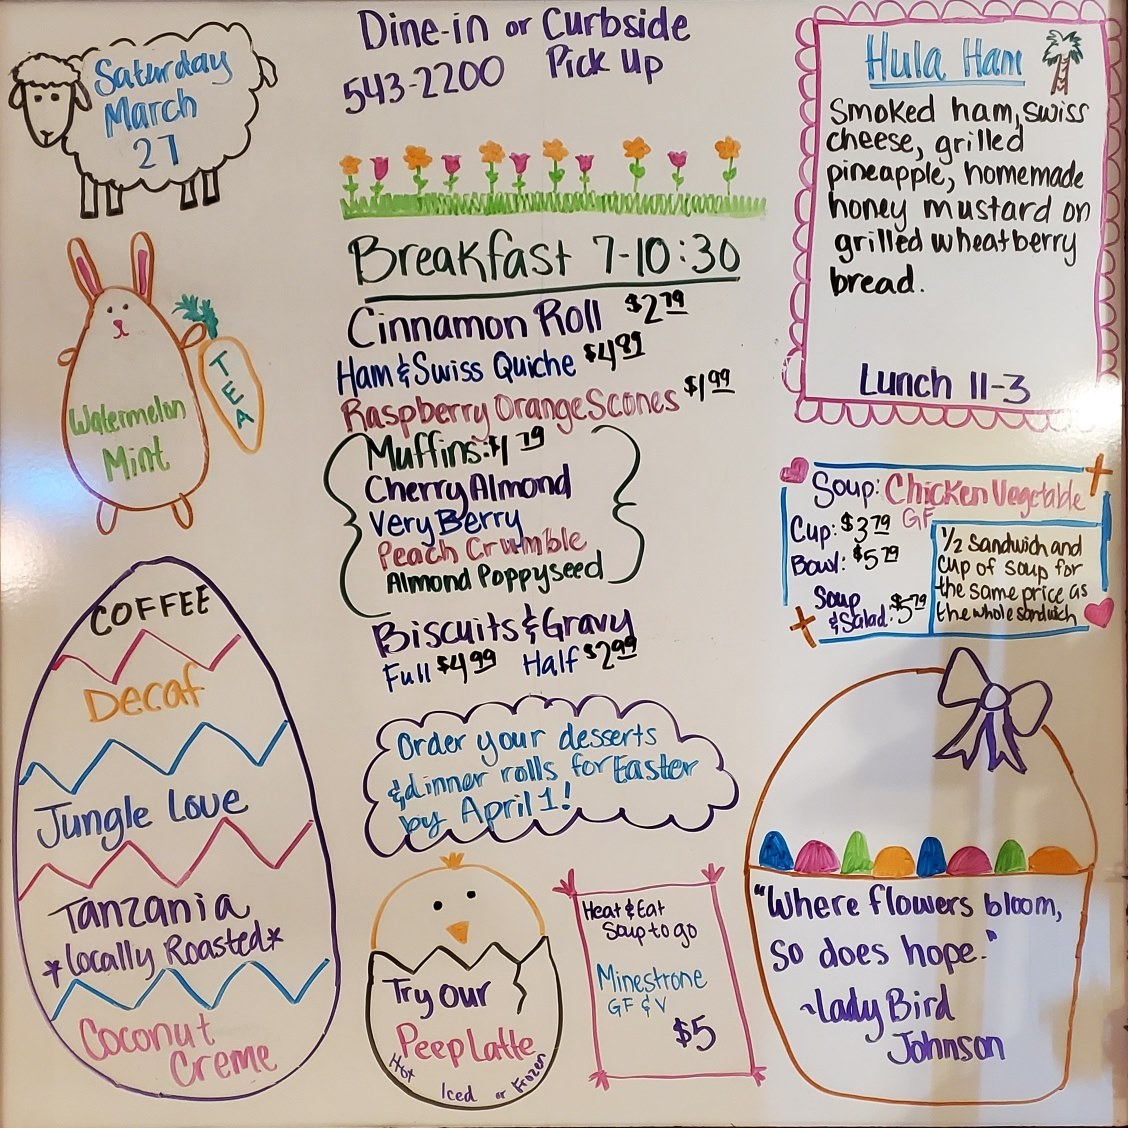 Saturday
March
27
Dine-in or Curbside
543-2200 Pick Up
Hula Ham
Smoked ham, swiss
cheese, grilled
pineapple, homemade
honey mustard on
grilled wheatberry
bread.
Lunch 11-3
Watermelon
Mint
TEA
Breakfast 7-10:30
Cinnamon Roll $2.79
Ham & Swiss Quiche $4.89
Raspberry Orange Scones $1.99
Muffins: $1.79
Cherry Almond
Very Berry
Peach Crumble
Almond Poppyseed
Biscuits & Gravy
Full $4.99 Half $2.99
Soup: Chicken Vegetable
GF
Cup: $3.79
Bowl: $5.79
Soup
& Salad: $5.79
1/2 Sandwich and
cup of soup for
the same price as
the whole sandwich
COFFEE
Decaf
Jungle Love
Tanzania
*locally Roasted*
Coconut
Creme
Order your desserts
& dinner rolls for Easter
by April 1!
Try our
Peep Latte
Hot Iced or Frozen
Heat & Eat
Soup to go
Minestrone
GF & V
$5
"Where flowers bloom,
so does hope."
~Lady Bird
Johnson